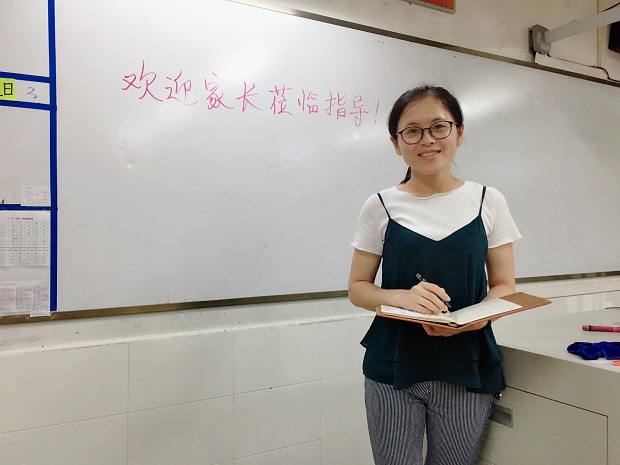 欢迎家长莅临指导！
日